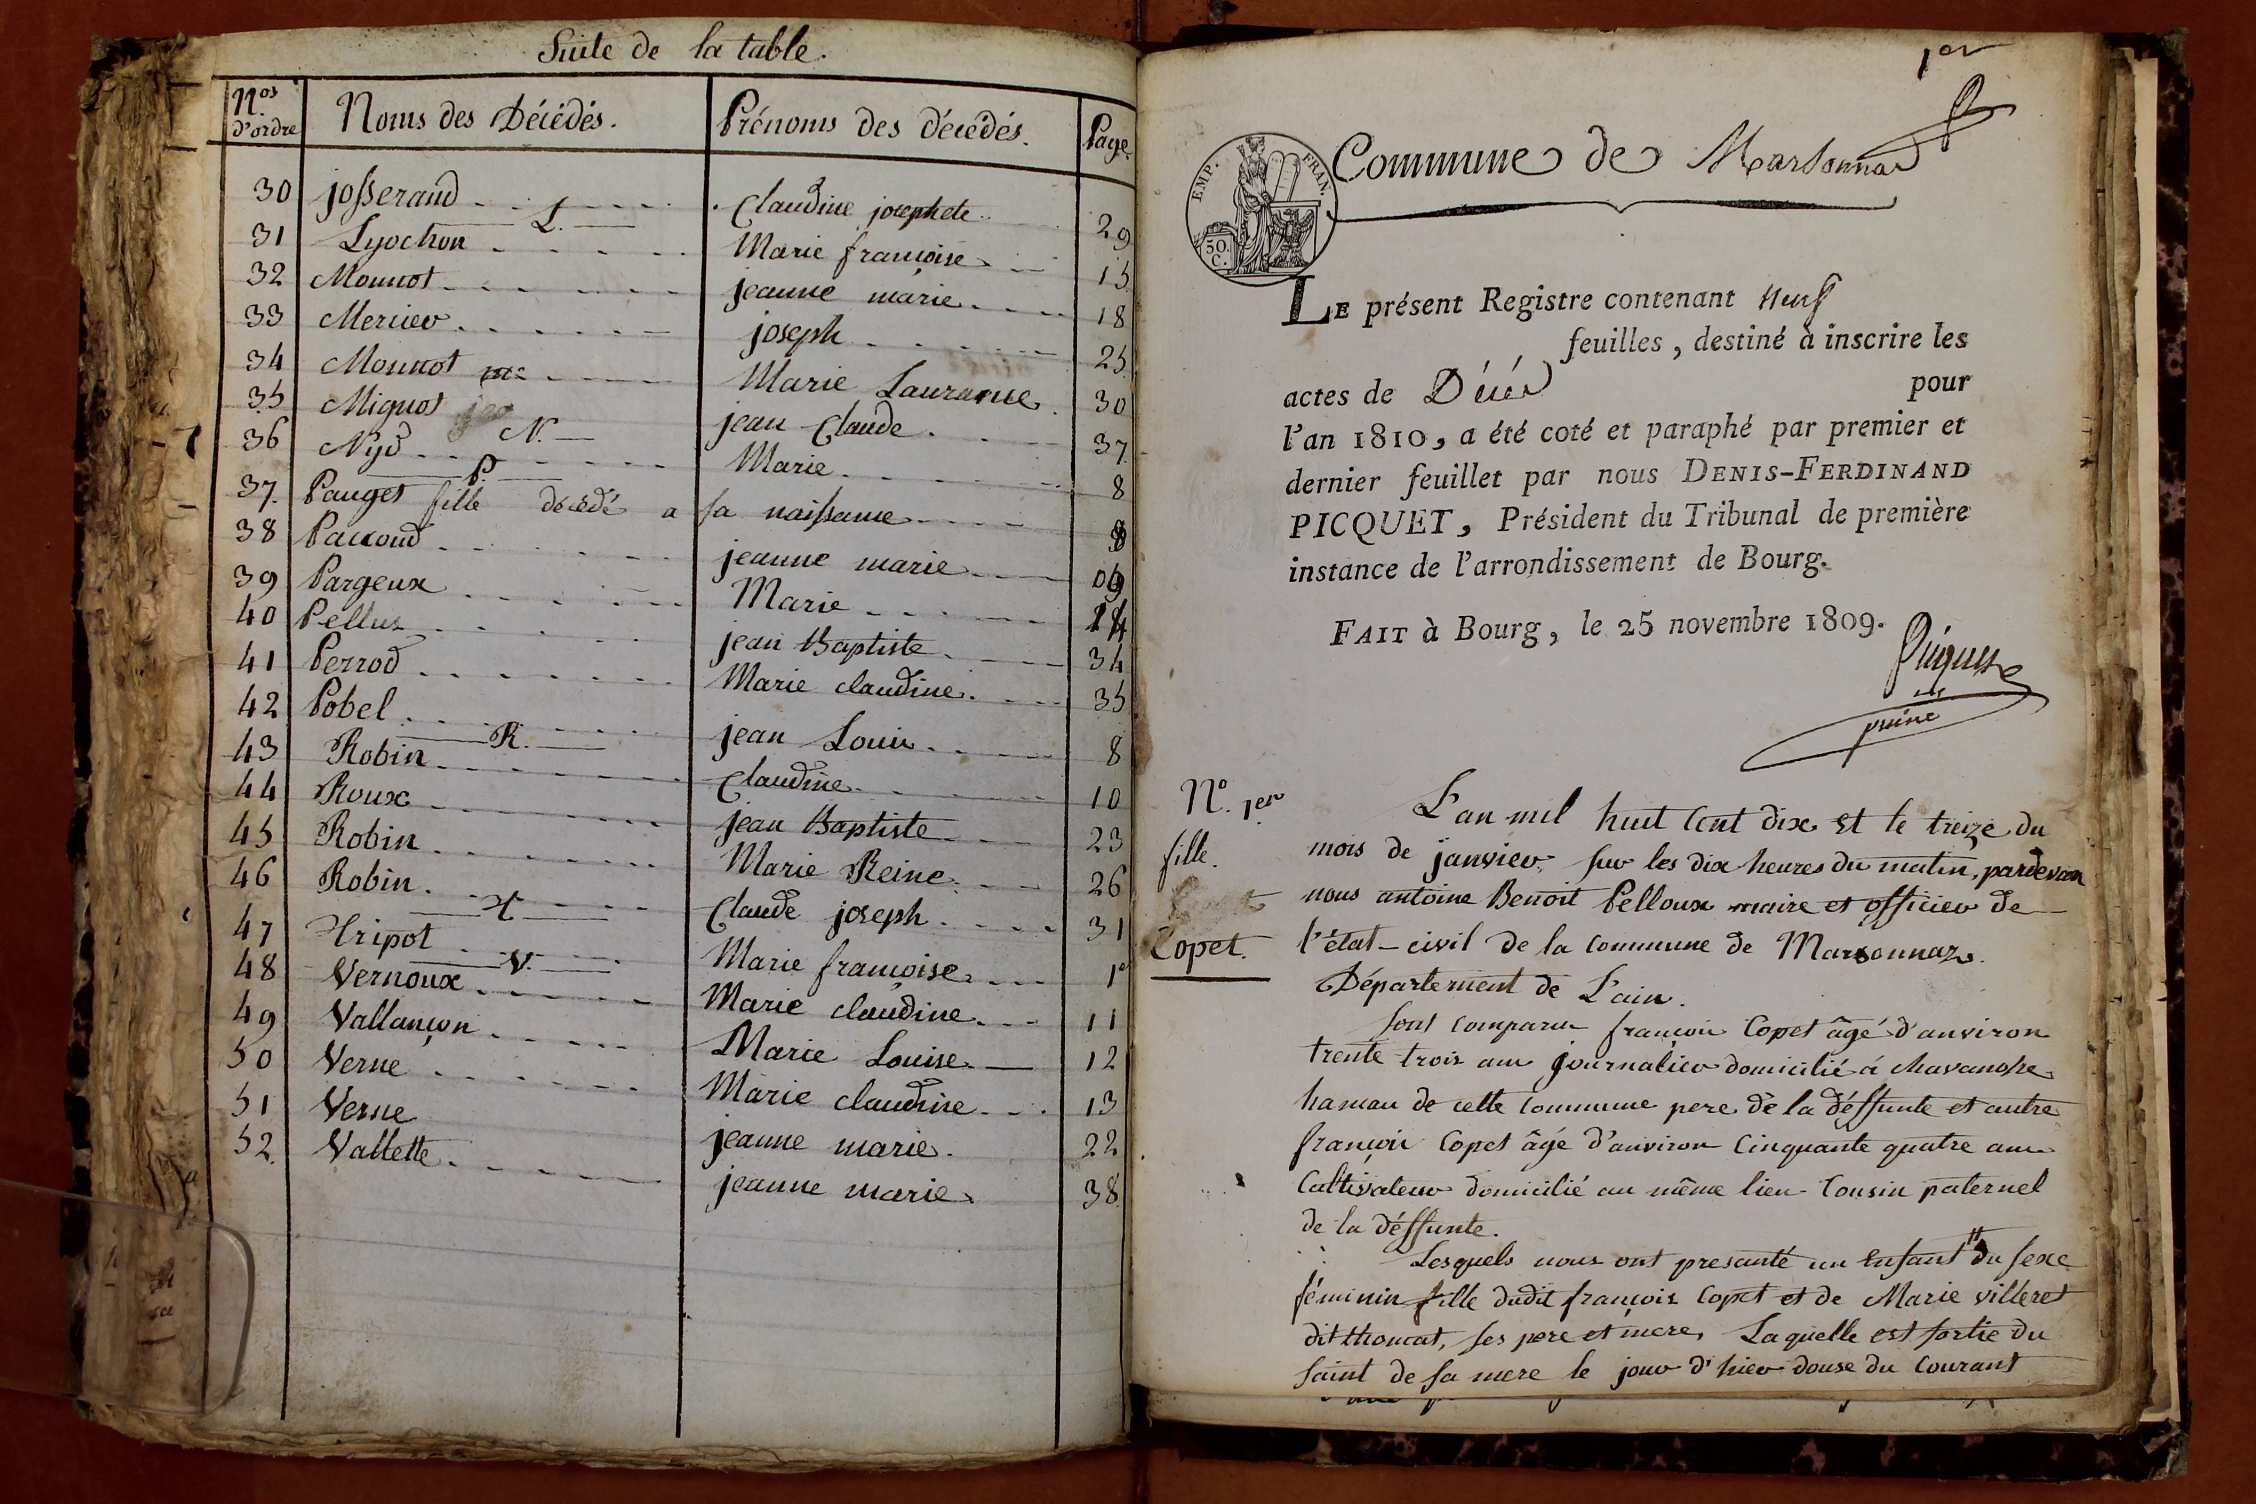 Suite de la table.
Nos d'ordre Noms des Décédés. Prénoms des décédés. Page
30 josserand Claudine josephete 29
L.
31 Lyochon Marie françoise 15
32 Monnot jeanne marie 18
33 Mercier joseph 25
34 Monnot Marie Laurance 30
35 Miguot jean Claude 37
N.
36 Nyd Marie 8
P.
37. Pauget fille décédé a sa naissance
38 Paccoud jeanne marie
39 Pargeux Marie
40 Pellux jean Baptiste 34
41 Perrod Marie claudine 35
42 Pobel jean Louis 8
R.
43 Robin Claudine 10
44 Roux jean Baptiste 23
45 Robin Marie Reine 26
46 Robin Claude joseph 31
T
47 Tripot Marie françoise 1er
V.
48 Vernoux Marie claudine 11
49 Vallançon Marie Louise 12
50 Verne Marie claudine 13
51 Verne jeanne marie 22
52 Vallette jeanne marie 38
1er
EMP. FRAN.
50. C.
Commune de Marsonnas
LE présent Registre contenant neuf
feuilles, destiné à inscrire les
actes de Décés pour
l'an 1810, a été coté et paraphé par premier et
dernier feuillet par nous DENIS-FERDINAND
PICQUET, Président du Tribunal de première
instance de l'arrondissement de Bourg.
FAIT à Bourg, le 25 novembre 1809.
Picquet
No. 1er
fille.
Copet.
L'an mil huit Cent dix et le treize du
mois de janvier sur les dix heures du matin, pardevan
nous antoine Benoit Pelloux maire et officier de
l'état-civil de la commune de Marsonnaz.
Département de L'ain.
Sont comparus françois Copet âgé d'anviron
trente trois ans journalier domicilié á chavanohe
hameau de cette commune pere de la déffunte et autre
françois Copet âgé d'anviron Cinquante quatre ans
Cultivateur domicilié au même lieu Cousin paternel
de la déffunte.
Lesquels nous ont presanté un enfant du sexe
féminin fille dudit françois Copet et de Marie villeret
dit thomat, ses pere et mere, Laquelle est sortie du
saint de sa mere le jour d'hier douse du Courant